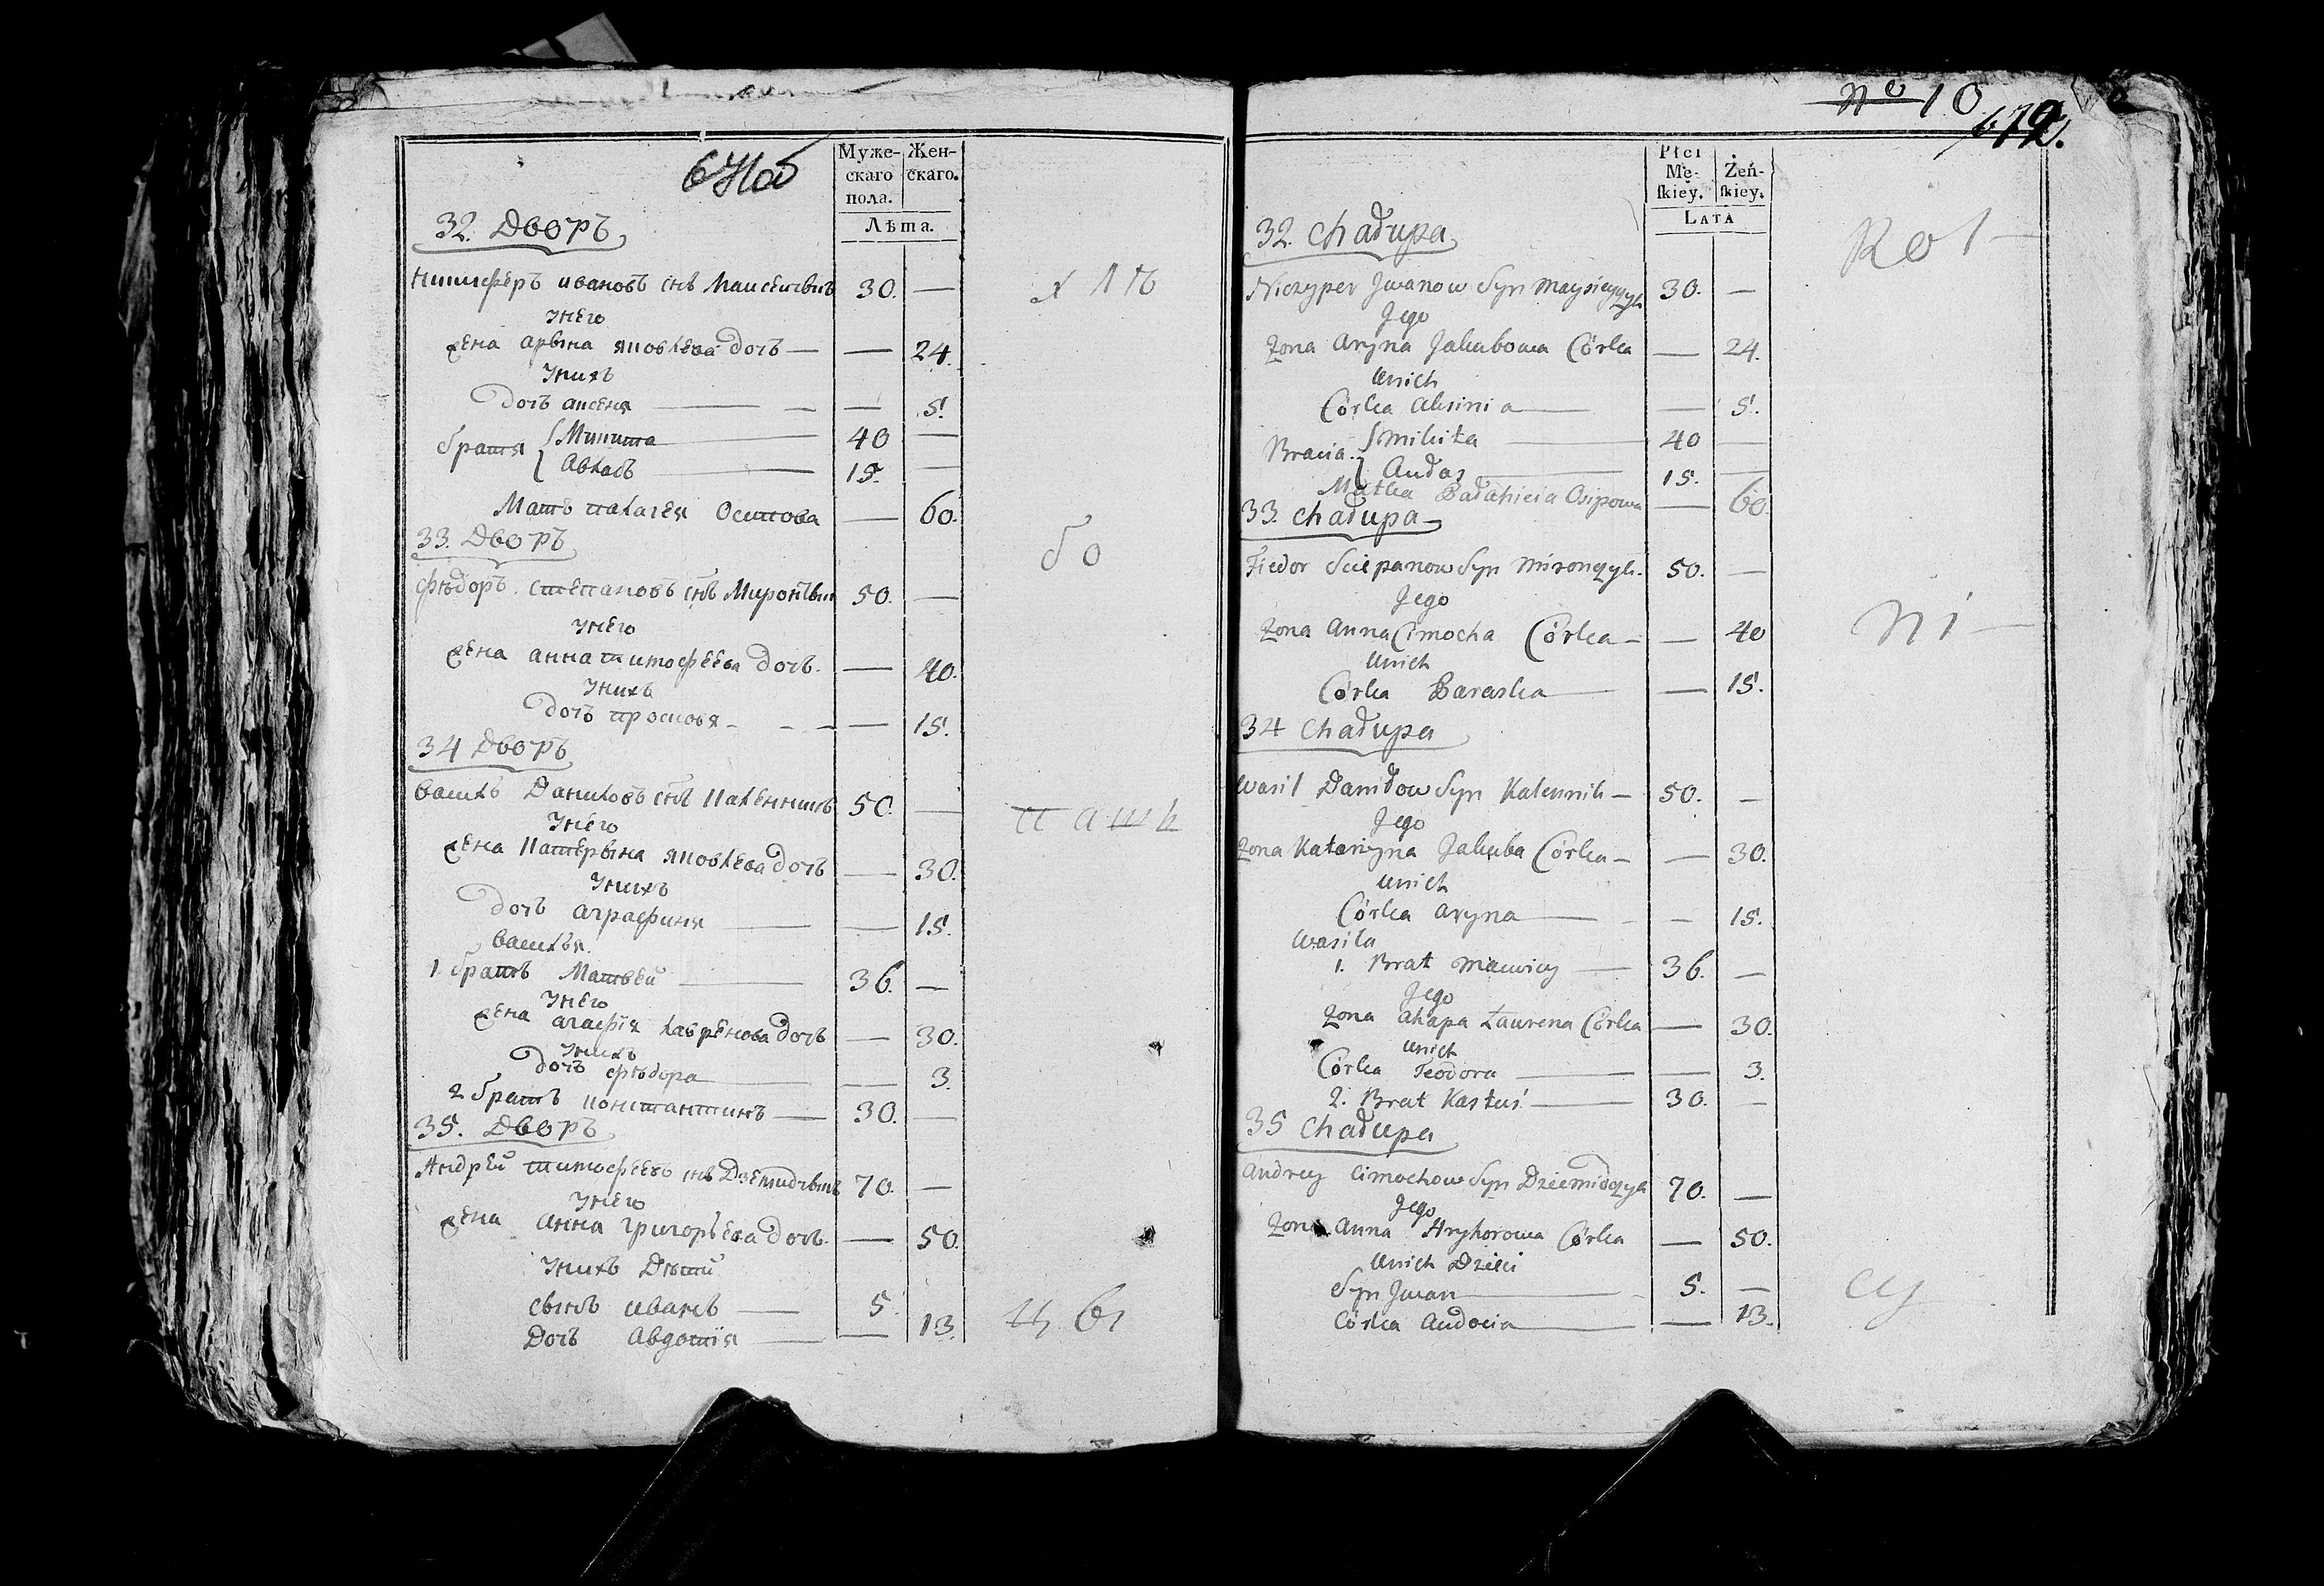 Муже-
скаго
пола.
Жен-
скаго.
Лѣта.
32. Дворъ
Ничиферъ ивановъ снъ Маисеичвик 30. —
Унего
жена арына яковлева дочь — — 24.
Унихъ
дочь аксеня — — 5.
братя { Микита — 40 —
Авласъ — 15. —
Мать палагея Осипова — 60.
33. Дворъ
Фѣдоръ степановъ снъ Мирончви 50. —
Унего
жена анна тимофеева дочь. — 40.
Унихъ
дочь просковя — — 15.
34 Дворъ
василь Даниловъ снъ Каленникъ 50. —
Унего
жена Катерына яковлева дочь — 30.
Унихъ
дочь аграфиня — — 15.
василья.
1. братъ Матвей — 36. —
Унего
жена агафія лавренова дочь — 30.
Унихъ
дочь фѣдора — — 3.
2 братъ константинъ — 30. —
35. Дворъ
Андрей тимофеевъ снъ Дземидчвик 70. —
Унего
жена анна григорьева дочь. — 50.
Унихъ Дѣти
сынъ иванъ — 5.
Дочь Авдотія — — 13.
бо
цы
No 10
Płci
Mę-
ſkiey.
Żeń-
ſkiey.
LATA
32. Chałupa
Niczyper Jwanow Syn Maysieyczyk 30. —
Jego
Zona Aryna Jakubowa Córka — 24.
Unich
Córka Aksinia — — 5.
Bracia { Mikita — 40 —
Audas — 15. —
Matka Pałahieia Osipowa — 60.
33. Chałupa
Fiedor Sciepanow Syn Mironczyk. 50. —
Jego
Zona Anna Cimocha Córka — — 40
Unich
Córka Paraska — — 15.
34 Chałupa
Wasil Daniłow Syn Kalennik — 50. —
Jego
Zona Katarzyna Jakuba Córka — — 30.
Unich
Córka Aryna — — 15.
Wasila
1. Brat Maciwiey — 36. —
Jego
Zona Ahapa Łaurena Córka — 30.
Unich
Córka Teodora — — 3.
2. Brat Kastuś — 30. —
35 Chałupa
Andrey Cimochow Syn Dziemidczyk 70. —
Jego
Zona Anna Hryhorowa Córka — 50.
Unich Dzieci
Syn Jwan — 5. —
Córka Audocia — — 13.
Kol —
ni —
cy